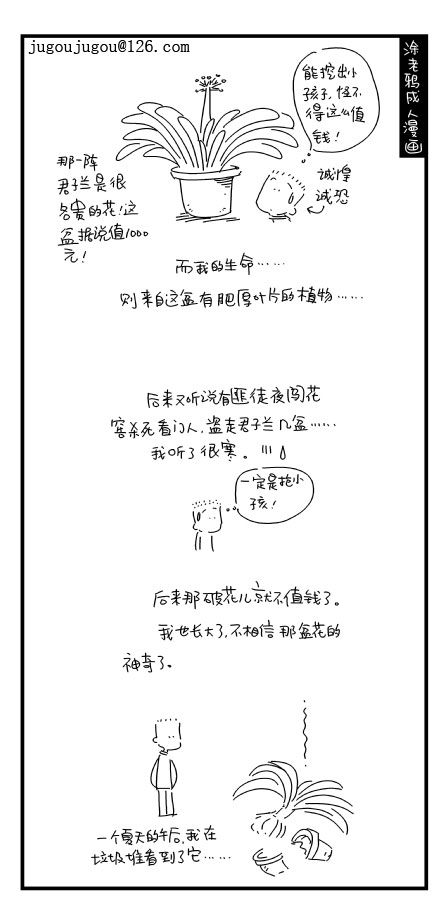 jugoujugou@126.com
涂老鸦成人漫画
能挖出小
孩子,怪不
得这么值
钱!
那一阵
君子兰是很
名贵的花!这
盆据说值1000
元!
诚惶
诚恐
而我的生命……
则来自这盆有肥厚叶片的植物……
后来又听说有匪徒夜闯花
窖杀死看门人,盗走君子兰几盆……
我听了很寒。!!!
一定是抢小
孩!
后来那破花儿就不值钱了。
我也长大了,不相信那盆花的
神奇了。
一个夏天的午后,我在
垃圾堆看到了它……